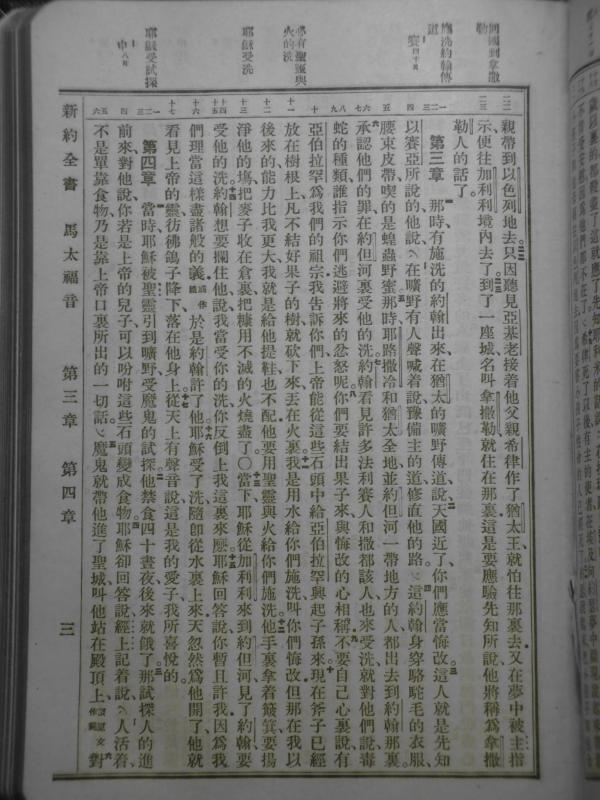 回國到拿撒
勒
施洗約翰傳
道
賽四十篇
必有聖靈與
火的洗
耶穌受洗
耶穌受試探
申八篇
親帶到以色列地去只因聽見亞基老接着他父親希律作了猶太王就怕往那裏去又在夢中被主指
示便往加利利境內去了到了一座城名叫拿撒勒就住在那裏這是要應驗先知所說他將稱爲拿撒
勒人的話了
第三章 那時有施洗的約翰出來在猶太的曠野傳道說天國近了你們應當悔改這人就是先知
以賽亞所說的他說在曠野有人聲喊着說豫備主的道修直他的路這約翰身穿駱駝毛的衣服
腰束皮帶喫的是蝗蟲野蜜那時耶路撒冷和猶太全地並約但河一帶地方的人都出去到約翰那裏
承認他們的罪在約但河裏受他的洗約翰看見許多法利賽人和撒都該人也來受洗就對他們說毒
蛇的種類誰指示你們逃避將來的忿怒呢你們要結出果子來與悔改的心相稱不要自己心裏說有
亞伯拉罕爲我們的祖宗我告訴你們上帝能從這些石頭中給亞伯拉罕興起子孫來現在斧子已經
放在樹根上凡不結好果子的樹就砍下來丟在火裏我是用水給你們施洗叫你們悔改但那在我以
後來的能力比我更大我就是給他提鞋也不配他要用聖靈與火給你們施洗他手裏拿着簸箕要揚
淨他的塲把麥子收在倉裏把糠用不滅的火燒盡了〇當下耶穌從加利利來到約但河見了約翰要
受他的洗約翰想要攔住他說我當受你的洗你反倒上我這裏來麼耶穌回答說你暫且許我因爲我
們理當這樣盡諸般的義或作禮於是約翰許了他耶穌受了洗隨卽從水裏上來天忽然爲他開了他就
看見上帝的靈彷彿鴿子降下落在他身上從天上有聲音說這是我的愛子我所喜悅的
第四章 當時耶穌被聖靈引到曠野受魔鬼的試探他禁食四十晝夜後來就餓了那試探人的進
前來對他說你若是上帝的兒子可以吩咐這些石頭變成食物耶穌卻回答說經上記着說人活着
不是單靠食物乃是靠上帝口裏所出的一切話魔鬼就帶他進了聖城叫他站在殿頂上頂原文作翅對
新約全書 馬太福音 第三章 第四章 三